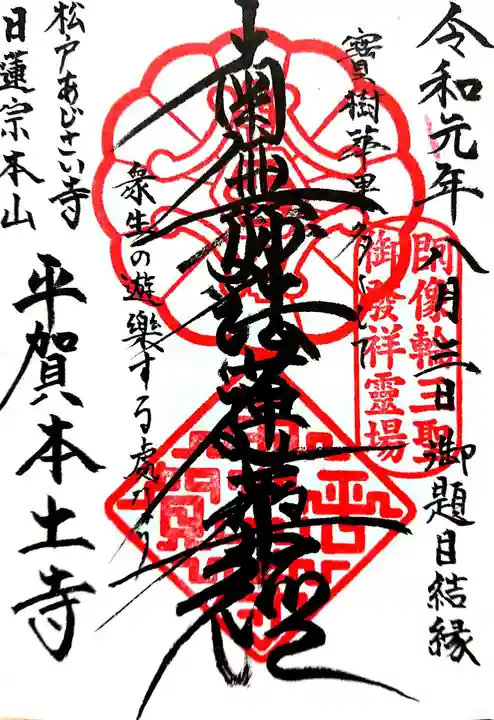 令和元年八月三日 御題目結縁
開像輪王聖
御發祥靈場
寳樹華果多くして
南無妙法蓮華経
衆生の遊樂する處なり
松戸あじさい寺
日蓮宗本山
平賀本土寺